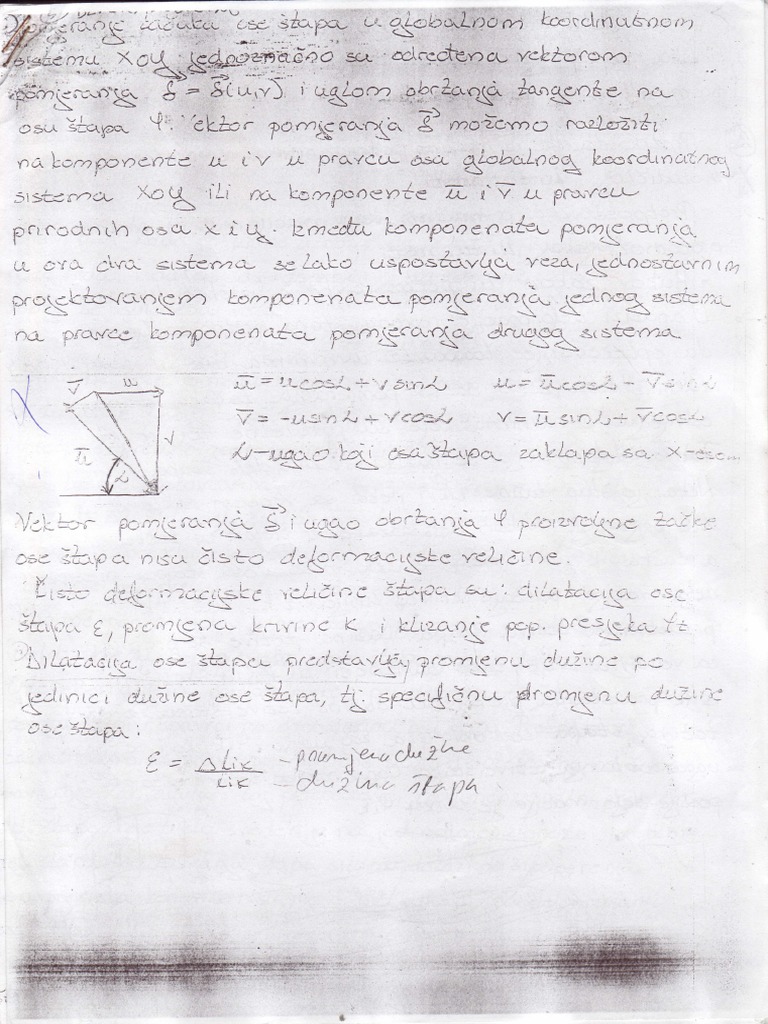 Pomjeranje tačaka ose štapa u globalnom koordinatnom
sistemu xoy jednoznačno su određena vektorom
pomjeranja δ⃗ = δ⃗(u,v) i uglom obrtanja tangente na
osu štapa φ. Vektor pomjeranja δ⃗ možemo razložiti
na komponente u i v u pravcu osa globalnog koordinatnog
sistema xoy ili na komponente ū i v̄ u pravcu
prirodnih osa x i y. Između komponenata pomjeranja
u ova dva sistema se lako uspostavlja veza, jednostavnim
projektovanjem komponenata pomjeranja jednog sistema
na pravce komponenata pomjeranja drugog sistema.
v̄ u
ū = u cosα + v sinα u = ū cosα - v̄ sinα
v̄ = -u sinα + v cosα v = ū sinα + v̄ cosα
v
ū α
α - ugao koji osa štapa zaklapa sa x-osom
Vektor pomjeranja δ⃗ i ugao obrtanja φ proizvoljne tačke
ose štapa nisu čisto deformacijske veličine.
Čisto deformacijske veličine štapa su: dilatacija ose
štapa ε, promjena krivine κ i klizanje pop. presjeka
Dilatacija ose štapa predstavlja promjenu dužine po
jedinici dužine ose štapa, tj. specifičnu promjenu dužine
ose štapa:
ε = Δlik - promjena dužine
lik - dužina štapa